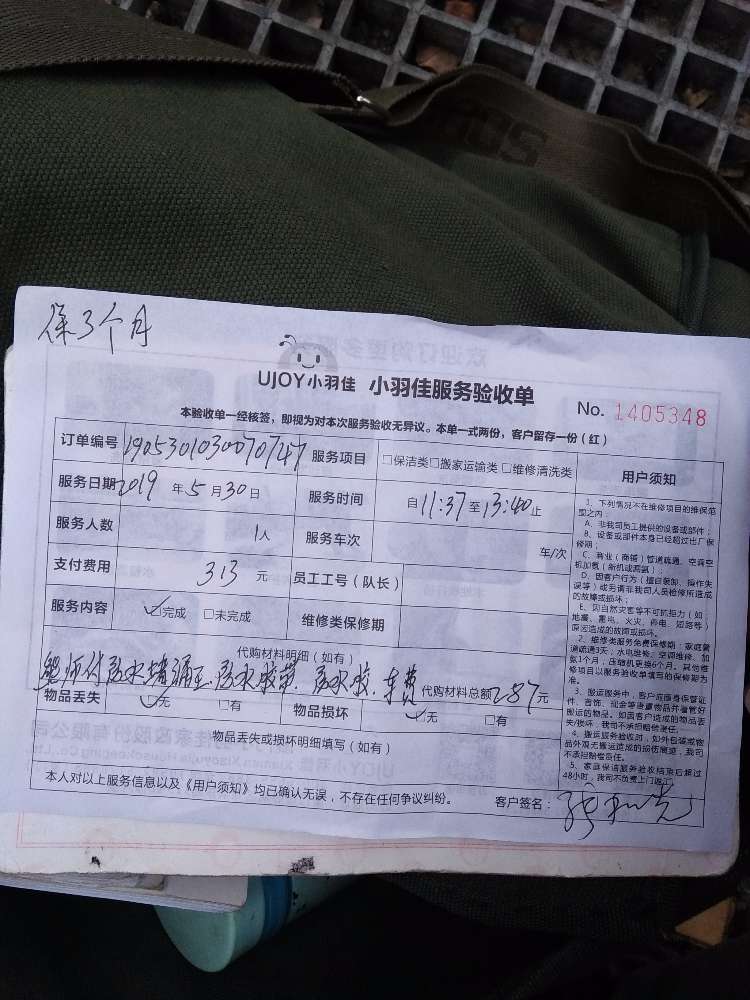 保3个月
UJOY小羽佳 小羽佳服务验收单
No. 1405348
本验收单一经核签，即视为对本次服务验收无异议。本单一式两份，客户留存一份（红）
订单编号 1905301030070747 服务项目 □保洁类□搬家运输类□维修清洗类
服务日期 2019 年 5 月 30 日 服务时间 自 11:37 至 13:40 止
服务人数 1人 服务车次 车/次
支付费用 313 元 员工工号（队长）
服务内容 ✓完成 □未完成 维修类保修期
代购材料明细（如有）
防水堵漏王 防水胶带 防水胶 车费 代购材料总额 287元
物品丢失 ✓无 □有 物品损坏 ✓无 □有
物品丢失或损坏明细填写（如有）
本人对以上服务信息以及《用户须知》均已确认无误，不存在任何争议纠纷。 客户签名：
用户须知
1、下列情况不在维修项目的维保范
围之内：
A、非我司员工提供的设备或部件；
B、设备或部件本身已经超过出厂保
修期；
C、商业（商铺）管道疏通、空调空
机加氨（新机或两器）；
D、因客户行为（擅自装卸、操作失
误等）或无请非我司人员检修所造成
的故障或损坏；
E、因自然灾害等不可抗拒力（如：
地震、雷电、火灾、停电、短路等）
原因造成的故障或损坏。
2、维修类服务免费保修期：家庭管
道疏通3天；水电维修、空调维修、加
氨1个月；压缩机更换6个月。其他维
修项目以服务验收单填写的保修期为
准。
3、搬运服务中，客户应随身保管证
件、首饰、现金等贵重物品并看管好
搬运的物品。如因客户造成的物品丢
失/损坏，我司不承担赔偿责任。
4、搬运服务验收时，如外包装或物
品外观无搬运造成的损伤痕迹，我司
不承担赔偿责任。
5、家庭保洁服务验收结束后超过
48小时，我司不负责上门返工。